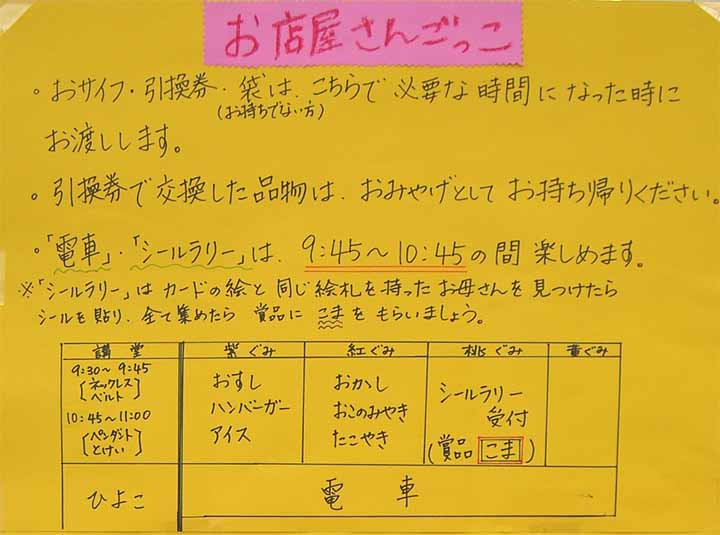 お店屋さんごっこ
。おサイフ・引換券・袋は、こちらで必要な時間になった時に
(お持ちでない方)
お渡しします。
。引換券で交換した品物は、おみやげとしてお持ち帰りください。
。「電車」・「シールラリー」は、9:45～10:45の間楽しめます。
※「シールラリー」はカードの絵と同じ絵札を持ったお母さんを見つけたら
シールを貼り、全て集めたら賞品にこまをもらいましょう。
講堂 紫ぐみ 紅ぐみ 桃ぐみ 黄ぐみ
9:30～9:45
[ネックレス
ベルト]
10:45～11:00
[ペンダント
とけい]
おすし
ハンバーガー
アイス
おかし
おこのみやき
たこやき
シールラリー
受付
(賞品 こま)
ひよこ 電車